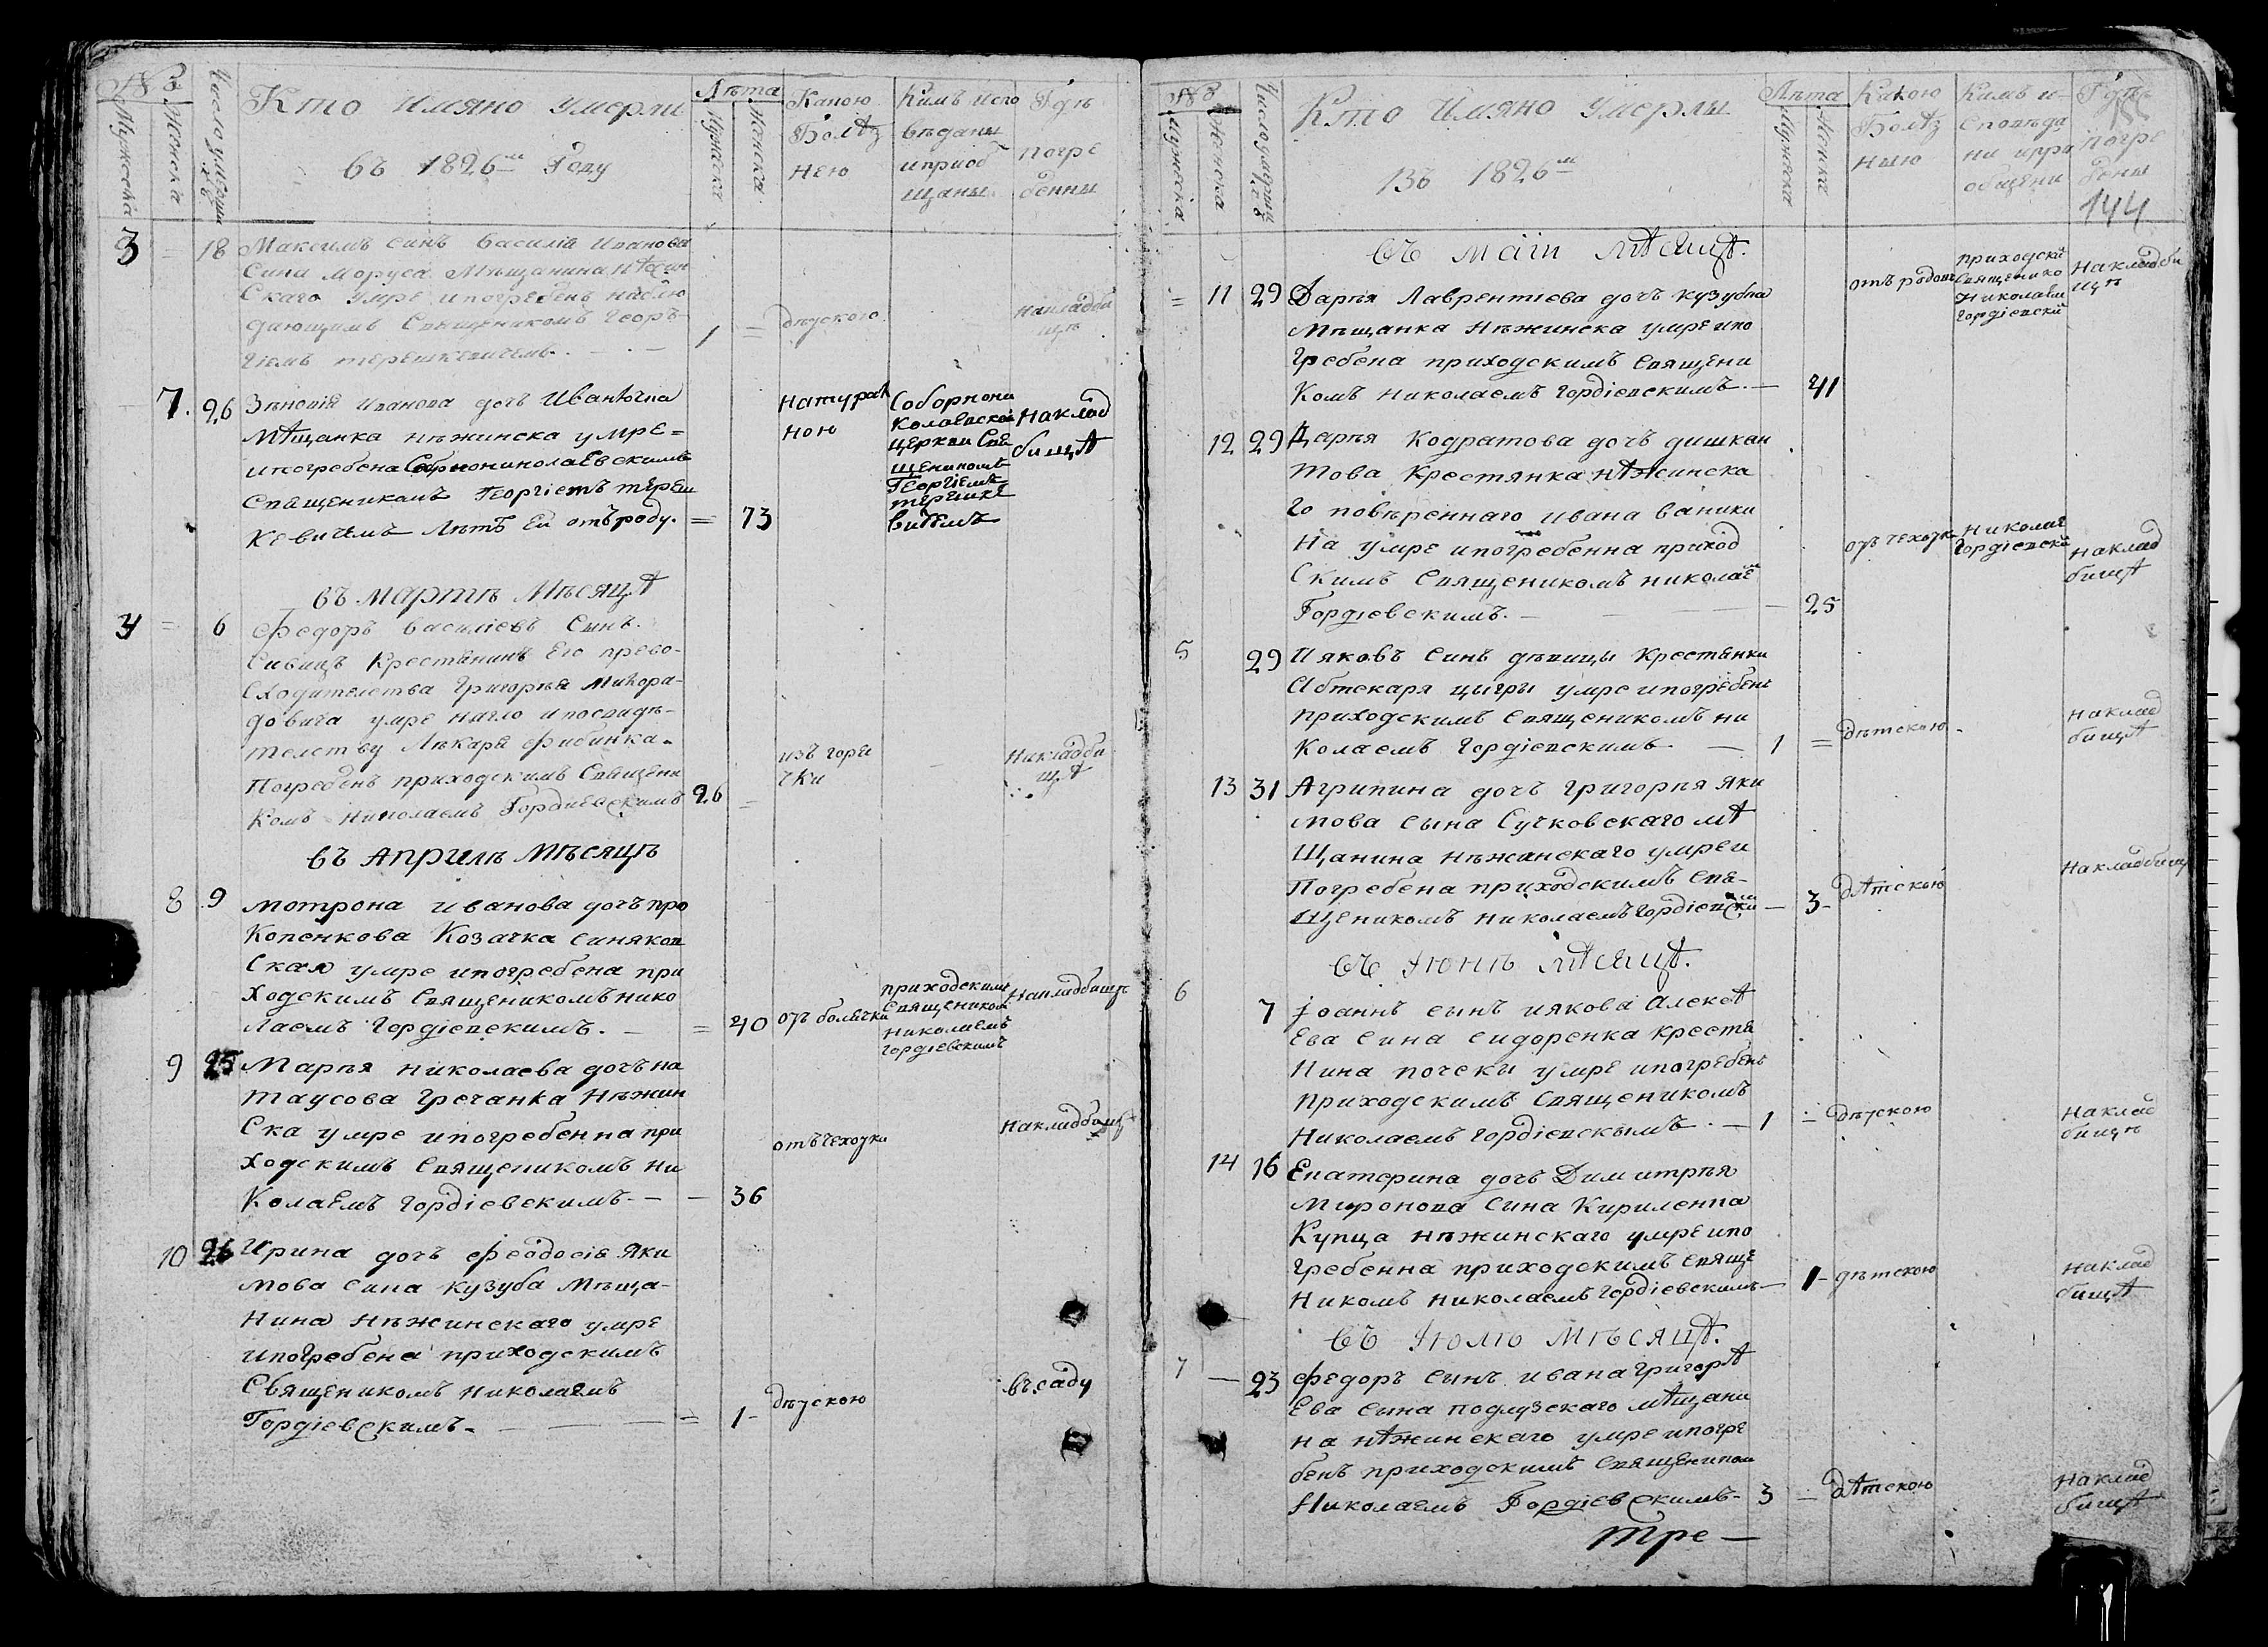 №
Мужеска
Женска
Число умерши
Кто имяно умерли
въ 1826м Году
Лѣта
Мужеска
Женска
Какою Болѣз нею
Кимъ исповѣданы и приоб щаны
Гдѣ погре бенны
3 = 18 Максимъ синъ Василія Иванова
Сина Моруса Мѣщанина нѣжин
Скаго умре и погребенъ наблю
дающимъ Священикомъ Геор
гіемъ терешкевичемъ. — 1 = дѣтскою накладби щѣ
7. 26 Зѣновія Иванова дочъ
Мѣщанка нѣжинска умре =
и погребена Соборнониколаевскимъ
Священикомъ Георгіемъ тереш
кевичемъ Лѣтъ Ей отъ роду. = 73
Натурал ною
Соборнони колаевской церкви Свя щеникомъ Георгіемъ терешке вичемъ
наклад бищѣ
въ мартѣ Мѣсяцѣ
4 = 6 Федоръ Василіевъ Сынъ
Крестянинъ Его прево-
сходителства Григорія Милора-
довича умре нагло и посвидѣ-
телству Лѣкаря
Погребенъ приходскимъ Священи
комъ Николаемъ Гордиевскимъ 26 =
изъ горя чки
Накладби щѣ
въ Априлѣ Мѣсяцѣ
8 9 Мотрона Иванова дочъ про
Копенкова Козачка Синяков
Ская умре и погребена при
Ходскимъ Священикомъ нико
лаемъ Гордіевскимъ. — = 40 отъ болячки
приходскимъ Священиком Николаемъ Гордіевскимъ
Накладбищѣ
9 25 Маръя николаева дочъ на
таусова Гречанка Нѣжин
Ска умре и погребенна при
ходскимъ Священикомъ ни
Колаемъ Гордіевскимъ. — — 36
отъ чехотки
Накладбищѣ
10 26 Ирина дочъ Феодосія Яки
мова Сина Кузуба Мѣща-
Нина Нѣжинскаго умре
и погребена приходскимъ
Священикомъ николаемъ
Гордіевскимъ. — = 1- дѣтскою
въ саду
№
Мужеска
Женска
Число умерши
Кто Имяно умерлы
въ 1826м
Лѣта
Мужеска
Женска
Какою Болѣз ныю
Кимъ и- сповѣда ни и прио общени
Гдѣ погре бены
144
въ маіи мѣсяцѣ.
= 11 29 Дарья Лаврентіева дочъ кузубка
Мѣщанка Нѣжинска умре и по
гребена приходскимъ Священи
Комъ николаемъ Гордіевскимъ. — 41
отъ родовъ
приходскій Священико Николаем Гордіевскій
Накладби щѣ
12 29 Даръя Кодратова дочъ дишкан
това Крестянка нѣжинска
го повѣреннаго Ивана Ваники
На умре и погребенна приход
Скимъ Священикомъ николаем
Гордіевскимъ. — — 25
отъ чехотки
Николае Гордіевскій
наклад бищѣ
5 29 Ияковъ Синъ дѣвицы Крестянки
Абтекаря цыгры умре и погребенъ
приходскимъ Священикомъ ни
Колаемъ Гордіевскимъ — 1 = дѣтскою.
наклад бищѣ
13 31 Агрипина дочъ Григоръя Яки
мова Сына Сучковскаго мѣ
щанина нѣжинскаго умре и
Погребена приходскимъ Свя-
щеникомъ николаемъ Гордіевским — 3- дѣтскою
Накладбищ
въ Июнѣ мѣсяцѣ.
6 7 Іоаннъ сынъ иякова Алексѣ
Ева Сина Сидоренка Крестя
Нина почеки умре и погребенъ
Приходскимъ Священикомъ
Николаемъ Гордіевскымъ. — 1 — дѣтскою
Наклад бищѣ
14 16 Екатерина дочъ Димитрія
Миронова Сина Кириленка
Купца нѣжинскаго умре и по
гребенна приходскимъ Свяще
Никомъ николаемъ Гордіевскимъ — 1- дѣтскою
наклад бищѣ
въ Июлю Мѣсяцѣ.
7 — 23 Федоръ Синъ Ивана Григорѣ
Ева Сына Подлузскаго мѣщани
На нѣжинскаго умре и погре
бенъ приходскимъ Священиком
Николаемъ Гордіевскимъ. 3 — дѣтскою
Наклад бищѣ
тре —